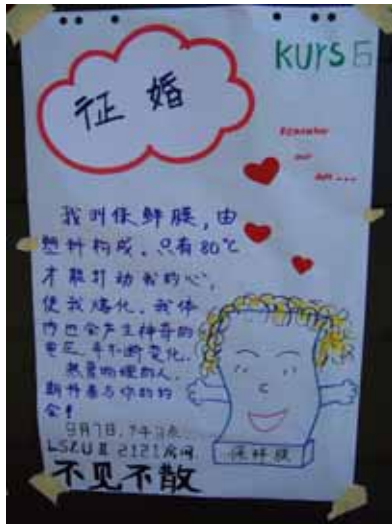 Kurs 6
征婚
我叫保鲜膜,由
塑料构成,只有80℃
才能打动我的心,
使我熔化,我体
内也会产生神奇的
电压,并不断变化.
热爱物理的人,
期待着与你的约
会!
9月7日,
LSKU II 2121房间.
不见不散
保鲜膜